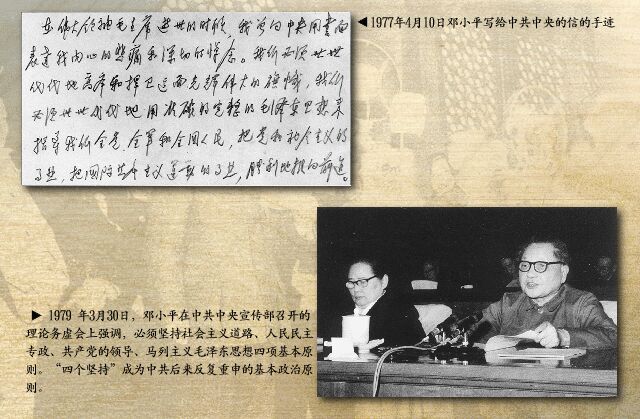 在伟大领袖毛主席逝世的时候，我曾向中央用书面
表达我内心的悲痛和深切的悼念。我们必须世世
代代地高举和捍卫这面光辉伟大的旗帜，我们
必须世世代代地用准确的完整的毛泽东思想来
指导我们全党、全军和全国人民，把党和社会主义的
事业，把国际共产主义运动的事业，胜利地推向前进。
◀1977年4月10日邓小平写给中共中央的信的手迹
▶ 1979 年3月30日，邓小平在中共中央宣传部召开的
理论务虚会上强调，必须坚持社会主义道路、人民民主
专政、共产党的领导、马列主义毛泽东思想四项基本原
则。“四个坚持”成为中共后来反复重申的基本政治原
则。